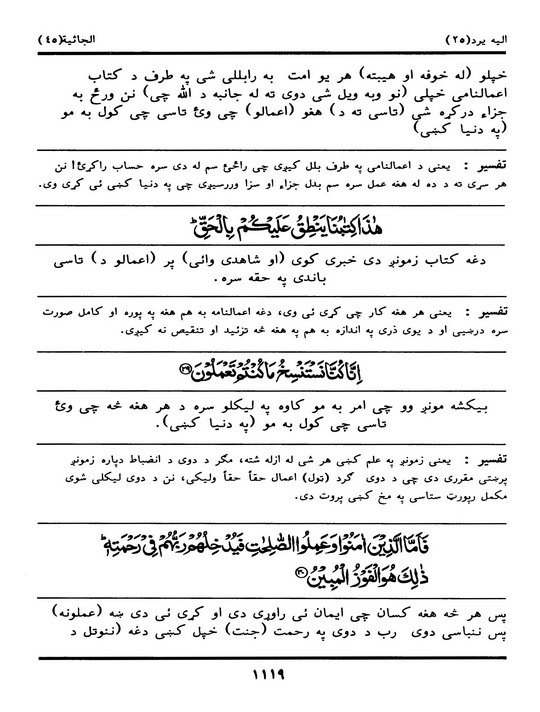 اليه يرد(٢٥) الجاثية(٤٥)
خپلو (له خوفه او هيبته) هر يو امت به رابللى شى په طرف د كتاب
اعمالنامى خپلى (نو وبه ويل شى دوى ته له جانبه د الله چى) نن ورځ به
جزاء دركړه شى (تاسى ته د) هغو (اعمالو) چى وئ تاسى چى كول به مو
(په دنيا كښى)
تفسير : يعنى د اعمالنامى په طرف بلل كيږى چى راځئ سم له دى سره حساب راكړئ! نن
هر سړى ته د ده له هغه عمل سره سم بدل جزاء او سزا وررسيږى چى په دنيا كښى ئى كړى وى.
هٰذَا كِتٰبُنَا يَنْطِقُ عَلَيْكُمْ بِالْحَقِّ ؕ
دغه كتاب زمونږ دى خبرى كوى (او شاهدى وائى) پر (اعمالو د) تاسى
باندى په حقه سره.
تفسير : يعنى هر هغه كار چى كړى ئى وى، دغه اعمالنامه به هم هغه په پوره او كامل صورت
سره درښيى او د يوى ذرى په اندازه به هم په هغه څه تزئيد او تنقيص نه كيږى.
اِنَّا كُنَّا نَسْتَنْسِخُ مَا كُنْتُمْ تَعْمَلُوْنَ ﴿۲۹﴾
بيكشه مونږ وو چى امر به مو كاوه په ليكلو سره د هر هغه څه چى وئ
تاسى چى كول به مو (په دنيا كښى).
تفسير : يعنى زمونږ په علم كښى هر شى له ازله شته، مګر د دوى د انضباط دپاره زمونږ
پرښتى مقررى دى چى د دوى ګرد (ټول) اعمال حقاً حقاً وليكى، نن د دوى ليكلى شوى
مكمل رپورټ ستاسى په مخ كښى پروت دى.
فَاَمَّا الَّذِيْنَ اٰمَنُوْا وَعَمِلُوا الصّٰلِحٰتِ فَيُدْخِلُهُمْ رَبُّهُمْ فِيْ رَحْمَتِهٖ ؕ
ذٰلِكَ هُوَ الْفَوْزُ الْمُبِيْنُ ﴿۳۰﴾
پس هر څه هغه كسان چى ايمان ئى راوړى دى او كړى ئى دى ښه (عملونه)
پس ننباسى دوى رب د دوى په رحمت (جنت) خپل كښى دغه (ننوتل د
١١١٩